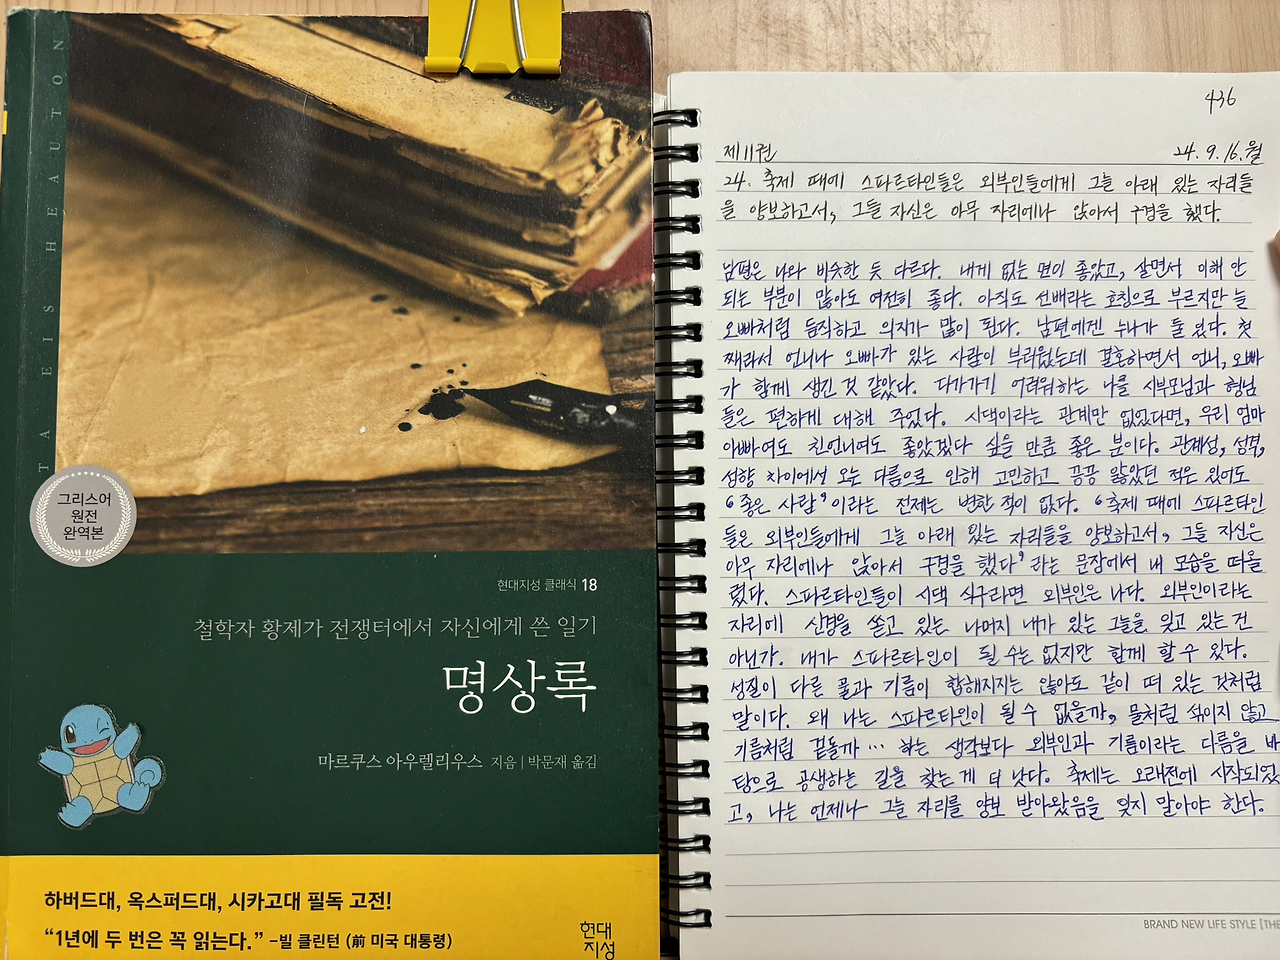 TA EIS HEAUTON
그리스어
원전
완역본
현대지성 클래식 18
철학자 황제가 전쟁터에서 자신에게 쓴 일기
명상록
마르쿠스 아우렐리우스 지음 | 박문재 옮김
하버드대, 옥스퍼드대, 시카고대 필독 고전!
“1년에 두 번은 꼭 읽는다.” –빌 클린턴 (前 미국 대통령)
현대
지성
436
제11권 24. 9. 16. 월
24. 축제 때에 스파르타인들은 외부인들에게 그늘 아래 있는 자리들
을 양보하고서, 그들 자신은 아무 자리에나 앉아서 구경을 했다.
남편은 나와 비슷한 듯 다르다. 내게 없는 면이 좋았고, 살면서 이해 안
되는 부분이 많아도 여전히 좋다. 아직도 선배라는 호칭으로 부르지만 늘
오빠처럼 듬직하고 의지가 많이 된다. 남편에겐 누나가 둘 있다. 첫
째라서 언니나 오빠가 있는 사람이 부러웠는데 결혼하면서 언니, 오빠
가 함께 생긴 것 같았다. 다가가기 어려워하는 나를 시부모님과 형님
들은 편하게 대해 주었다. 시댁이라는 관계만 없었다면, 우리 엄마
아빠여도 친언니여도 좋았겠다 싶을 만큼 좋은 분이다. 관계성, 성격,
성향 차이에서 오는 다름으로 인해 고민하고 끙끙 앓았던 적은 있어도
‘좋은 사람’이라는 전제는 변한 적이 없다. ‘축제 때에 스파르타인
들은 외부인들에게 그늘 아래 있는 자리들을 양보하고서, 그들 자신은
아무 자리에나 앉아서 구경을 했다’라는 문장에서 내 모습을 떠올
렸다. 스파르타인들이 시댁 식구라면 외부인은 나다. 외부인이라는
자리에 신경을 쏟고 있는 나머지 내가 있는 그늘을 잊고 있는 건
아닌가. 내가 스파르타인이 될 수는 없지만 함께 할 수 있다.
성질이 다른 물과 기름이 합해지지는 않아도 같이 떠 있는 것처럼
말이다. 왜 나는 스파르타인이 될 수 없을까, 물처럼 섞이지 않고
기름처럼 겉돌까… 하는 생각보다 외부인과 기름이라는 다름을 바
탕으로 공생하는 길을 찾는 게 더 낫다. 축제는 오래전에 시작되었
고, 나는 언제나 그늘 자리를 양보 받아왔음을 잊지 말아야 한다.
BRAND NEW LIFE STYLE [THE